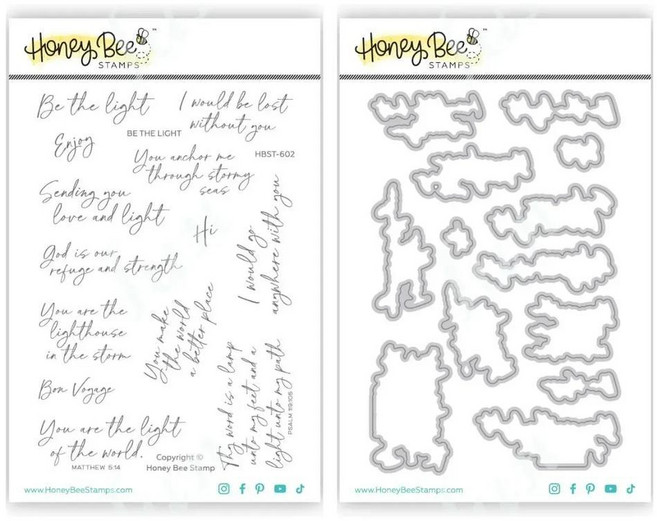 Honey Bee
STAMPS
™
Be the light
I would be lost
without you
BE THE LIGHT
Enjoy
HBST-602
You anchor me
through stormy
seas
Sending you
love and light
Hi
I would go
anywhere with you
God is our
refuge and strength
You are the
lighthouse
in the storm
You make
the world
a better place
Thy word is a lamp
unto my feet and a
light unto my path
PSALM 119:105
Bon Voyage
You are the light
of the world.
MATTHEW 5:14
Copyright ©
Honey Bee Stamp
www.HoneyBeeStamps.com
Honey Bee
STAMPS
™
www.HoneyBeeStamps.com